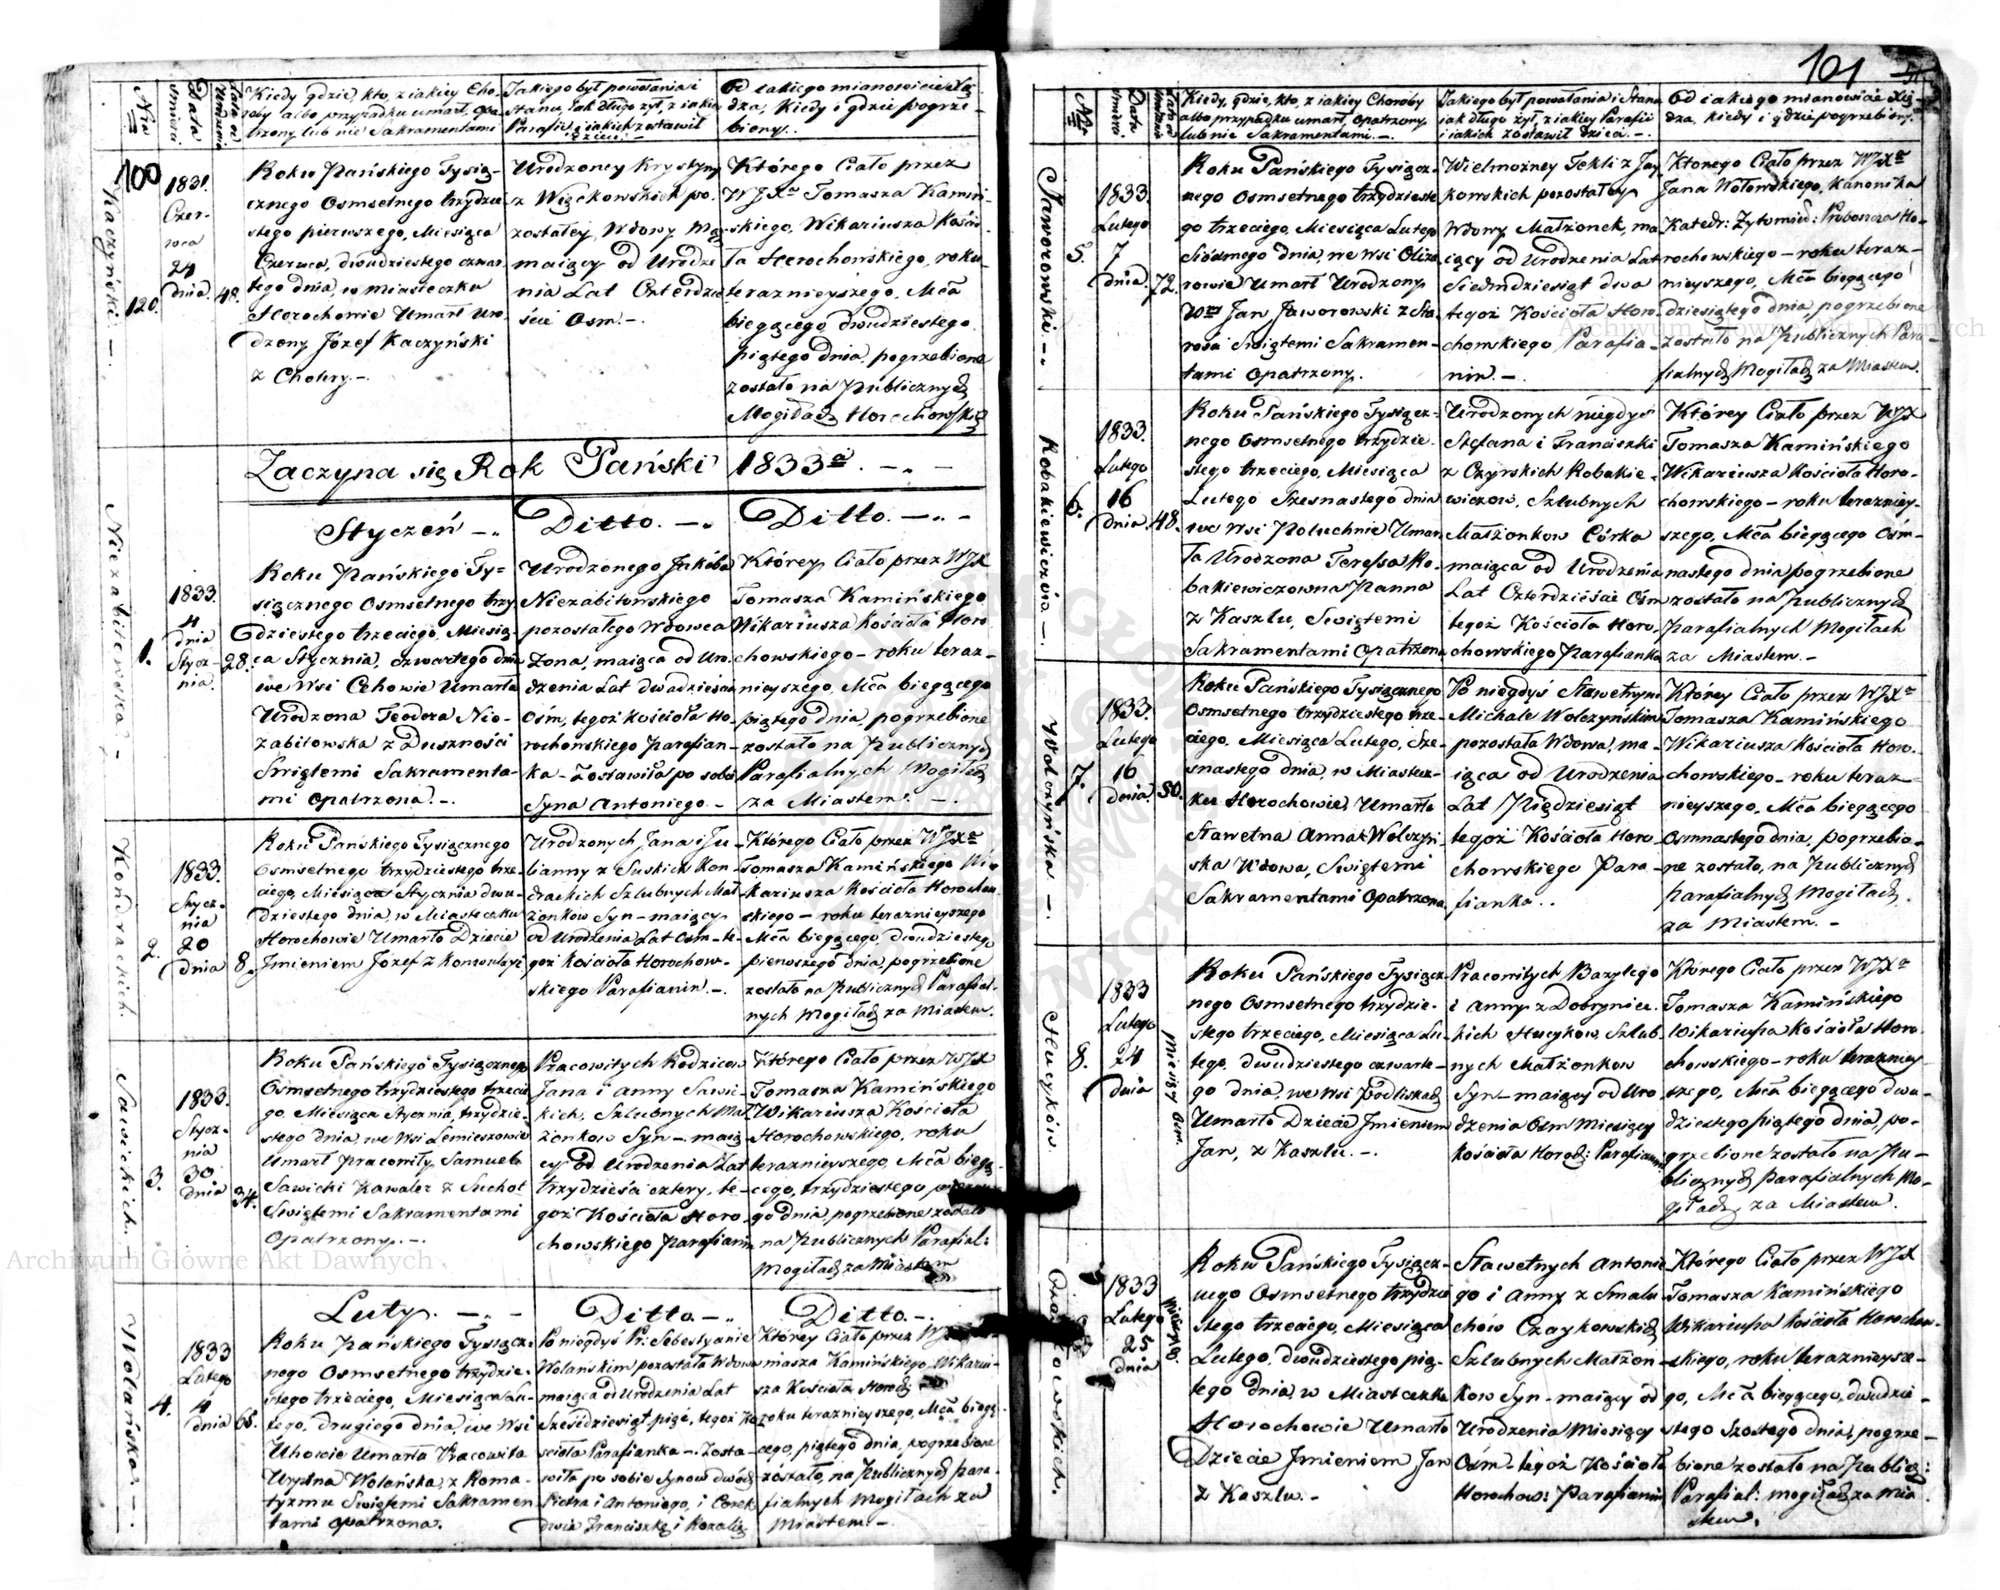 Nro
Data smierci
Kiedy gdzie, kto, z iakiey Cho-
roby albo przypadku umarł, opa-
trzony lub nie Sakramentami
Jakiego był powołania i
Stanu, Jak długo żył, z iakiey
Parafii i iakich zostawił
dzieci.
Od iakiego mianowicie Xię-
dza, Kiedy i gdzie pogrze-
biony.
100
Kaczyński. —.
120.
1831.
Czer-
wca
24
dnia.
48.
Roku Pańskiego Tysią-
cznego Osmsetnego trzydzie-
stego pierwszego, Miesiąca
Czerwca, dwudziestego czwar-
tego dnia, w miasteczku
Horochowie Umarł Uro-
dzony Józef Kaczyński
z Cholery. —.
Urodzoney Krystyny
z Więckowskich po-
zostałey Wdowy Mąż
maiący od Urodze-
nia Lat Czterdzie-
ście Osm. —.
Którego Ciało przez
WJXa Tomasza Kamiń-
skiego, Wikariusza Kościo-
ła Horochowskiego, roku
teraznieyszego, Mca
biegącego dwudziestego
piątego dnia, pogrzebione
zostało na Publicznych
Mogiłach Horochowskich
Zaczyna się Rok Pański 1833a. —. —
Styczeń —. Ditto. —. Ditto. —. —
Niezabitowska. —
1.
1833.
4
dnia
Stycz-
nia.
28.
Roku Pańskiego Ty-
siącznego Osmsetnego trzy-
dziestego trzeciego, Miesią-
ca Stycznia, czwartego dnia
we Wsi Cehowie Umarła
Urodzona Teodora Nie-
zabitowska z Duszności
Swiętemi Sakramenta-
mi Opatrzona. —.
Urodzonego Jakóba
Niezabitowskiego
pozostałego Wdowca
Zona, maiąca od Uro-
dzenia Lat dwadzieścia
Ośm, tegoż Kościoła Ho-
rochowskiego Parafian-
ka — Zostawiła po sobie
Syna Antoniego. —
Którey Ciało przez WJX
Tomasza Kamińskiego
Wikariusza Kościoła Horo-
chowskiego — roku teraz-
nieyszego, Mca biegącego
piątego dnia, pogrzebione
zostało na Publicznych
Parafialnych Mogiłach
za Miastem. —.
Kondrackich.
2.
1833.
Stycz-
nia
20
dnia
8.
Roku Pańskiego Tysiącznego
Osmsetnego trzydziestego trze-
ciego, Miesiąca Stycznia dwu-
dziestego dnia, w Miasteczku
Horochowie Umarło Dziecie
Imieniem Józef z Konwulsyi
Urodzonych Jana i Ju-
lianny z Suskich Kon-
drackich Szlubnych Mał-
żonkow Syn — maiący
od Urodzenia Lat Osm — te-
goż Kościoła Horochow-
skiego Parafianin. —.
Którego Ciało przez WJXa
Tomasza Kamińskiego Wi-
kariusza Kościoła Horochow-
skiego — roku teraznieyszego
Mca biegącego, dwudziestego
pierwszego dnia, pogrzebione
zostało na Publicznych Parafial-
nych Mogiłach za Miastem.
Sawickich. —
3.
1833.
Stycz-
nia
30
dnia
34.
Roku Pańskiego Tysiącznego
Osmsetnego trzydziestego trzecie-
go, Miesiąca Stycznia, trzydzie-
stego dnia, we Wsi Lemieszowie
Umarł Pracowity Samuel
Sawicki Kawaler z Suchot
Swiętemi Sakramentami
Opatrzony. —.
Pracowitych Rodzicow
Jana i Anny Sawic-
kich, Szlubnych Mał-
żonkow Syn — maią-
cy od Urodzenia Lat
trzydzieści cztery, te-
goż Kościoła Horo-
chowskiego Parafianin
Którego Ciało przez WJX
Tomasza Kamińskiego
Wikariusza Kościoła
Horochowskiego, roku
teraznieyszego, Mca biegą-
cego, trzydziestego pierwsze-
go dnia, pogrzebione zostało
na Publicznych Parafial:
Mogiłach za Miastem
Luty. —. — Ditto. —. Ditto. —
Wolańska. —.
4.
1833
Lutego
4
dnia
65.
Roku Pańskiego Tysiącz-
nego Osmsetnego trzydzie-
stego trzeciego, Miesiąca Lu-
tego, drugiego dnia, we Wsi
Uhowie Umarła Pracowita
Wolańska, z Roma-
tyzmu Swiętemi Sakramen-
tami Opatrzona.
Po niegdyś Pr: Sebestyanie
Wolańskim pozostała Wdowa
maiąca od Urodzenia Lat
Sześćdziesiąt pięć, tegoż Ko-
ścioła Parafianka —. Zosta-
wiła po sobie Synow dwóch
Piotra i Antoniego, i Corek
dwie Franciszkę i Rozalię
Którey Ciało przez
masza Kamińskiego Wikariu-
sza Kościoła Horoch:
roku teraznieyszego, Mca biegą-
cego, piątego dnia, pogrzebione
zostało, na Publicznych Para-
fialnych Mogiłach za
Miastem. —
101
Nro
Data smierci
Kiedy, gdzie, kto, z iakiey Choroby
albo przypadku umarł, opatrzony
lub nie Sakramentami. —.
Jakiego był powołania i Stanu
iak długo żył, z iakiey Parafii
i iakich zostawił dzieci. —.
Od iakiego mianowicie Xię-
dza, kiedy i gdzie pogrzebiony.
Jaworowski. —.
5.
1833.
Lutego
7
dnia.
72.
Roku Pańskiego Tysiącz-
nego Osmsetnego trzydzieste-
go trzeciego, Miesiąca Lutego
Siódmego dnia, we Wsi Oliza-
rowie Umarł Urodzony
Jan Jaworowski z Sta-
rosci Swiętemi Sakramen-
tami Opatrzony.
Wielmożney Tekli z Jay-
kowskich pozostałey
Wdowy Małżonek, ma-
iący od Urodzenia Lat
Siedmdziesiąt dwa
tegoż Kościoła Horo-
chowskiego Parafia-
nin. —.
Ktorego Ciało przez WJXa
Jana Wołowskiego, Kanonika
Katedr: Zytomier: Proboscza Ho-
rochowskiego — roku teraz-
nieyszego, Mca biegącego
dziesiątego dnia, pogrzebione
zostało na Publicznych Para-
fialnych Mogiłach za Miastem.
Robakiewiczów. —
6.
1833.
Lutego
16
dnia.
48.
Roku Pańskiego Tysiącz-
nego Osmsetnego trzydzie-
stego trzeciego, Miesiąca
Lutego Szesnastego dnia
we Wsi Poluchnie Umar-
ła Urodzona Teressa Ro-
bakiewiczowna Panna
z Kaszlu, Swiętemi
Sakramentami Opatrzona
Urodzonych niegdyś
Stefana i Franciszki
z Czyrskich Robakie-
wiczow, Szlubnych
Małżonkow Córka
maiąca od Urodzenia
Lat Czterdzieście Ośm
tegoż Kościoła Horo-
chowskiego Parafianka
Którey Ciało przez WJX
Tomasza Kamińskiego
Wikariusza Kościoła Horo-
chowskiego — roku teraźniey-
szego, Mca biegącego Óśm-
nastego dnia pogrzebione
zostało na Publicznych
Parafialnych Mogiłach
za Miastem. —
Wolczyńska —.
7.
1833.
Lutego
16
dnia.
50.
Roku Pańskiego Tysiącznego
Osmsetnego trzydziestego trze-
ciego, Miesiąca Lutego, Sze-
snastego dnia, w Miastecz-
ku Horochowie, Umarła
Sławetna Anna Wolczyń-
ska Wdowa, Swiętemi
Sakramentami Opatrzona
Po niegdyś Sławetnym
Michale Wolczyńskim
pozostała Wdowa, ma-
iąca od Urodzenia
Lat Pięćdziesiąt
tegoż Kościoła Horo-
chowskiego Para-
fianka. .
Którey Ciało przez WJXa
Tomasza Kamińskiego
Wikariusza Kościoła Horo-
chowskiego — roku teraz-
nieyszego, Mca biegącego
Osmnastego dnia, pogrzebio-
ne zostało, na Publicznych
Parafialnych Mogiłach
za Miastem. —
Hucyków.
8.
1833
Lutego
24
dnia
Miesięcy Osm.
Roku Pańskiego Tysiącz-
nego Osmsetnego trzydzie-
stego trzeciego, Miesiąca Lu-
tego, dwudziestego czwarte-
go dnia, we Wsi Podliskach
Umarło Dziecie Imieniem
Jan, z Kaszlu. —.
Pracowitych Bazylego
i Anny z Dobrynie-
kich Hucykow Szlub-
nych Małżonkow
Syn — maiący od Uro-
dzenia Osm Miesięcy
Kościoła Horoch: Parafianin
Którego Ciało przez WJXa
Tomasza Kamińskiego
Wikariusza Kościoła Horo-
chowskiego — roku teraźniey-
szego, Mca biegącego dwu-
dziestego piątego dnia, po-
grzebione zostało na Pu-
blicznych Parafialnych Mo-
giłach za Miastem.
1833
Lutego
25
dnia
Roku Pańskiego Tysiącz-
nego Osmsetnego trzydzie-
stego trzeciego, Miesiąca
Lutego, dwudziestego pią-
tego dnia, w Miasteczku
Horochowie Umarło
Dziecie Imieniem Jan
z Kaszlu. —
Sławetnych Antonie-
go i Anny z Smalu-
chów Czaykowskich
Szlubnych Małżon-
kow Syn — maiący od
Urodzenia Miesięcy
Ośm — tegoż Kościoła
Horochow: Parafianin
Którego Ciało przez WJX
Tomasza Kamińskiego
Wikariusza Kościoła Horochow-
skiego, roku teraznieysze-
go, Mca biegącego, dwudzie-
stego Szostego dnia, pogrze-
bione zostało na Public:
Parafial: mogiłach za Mia-
stem.
Archiwum Główne Akt Dawnych
Archiwum Główne Akt Dawnych